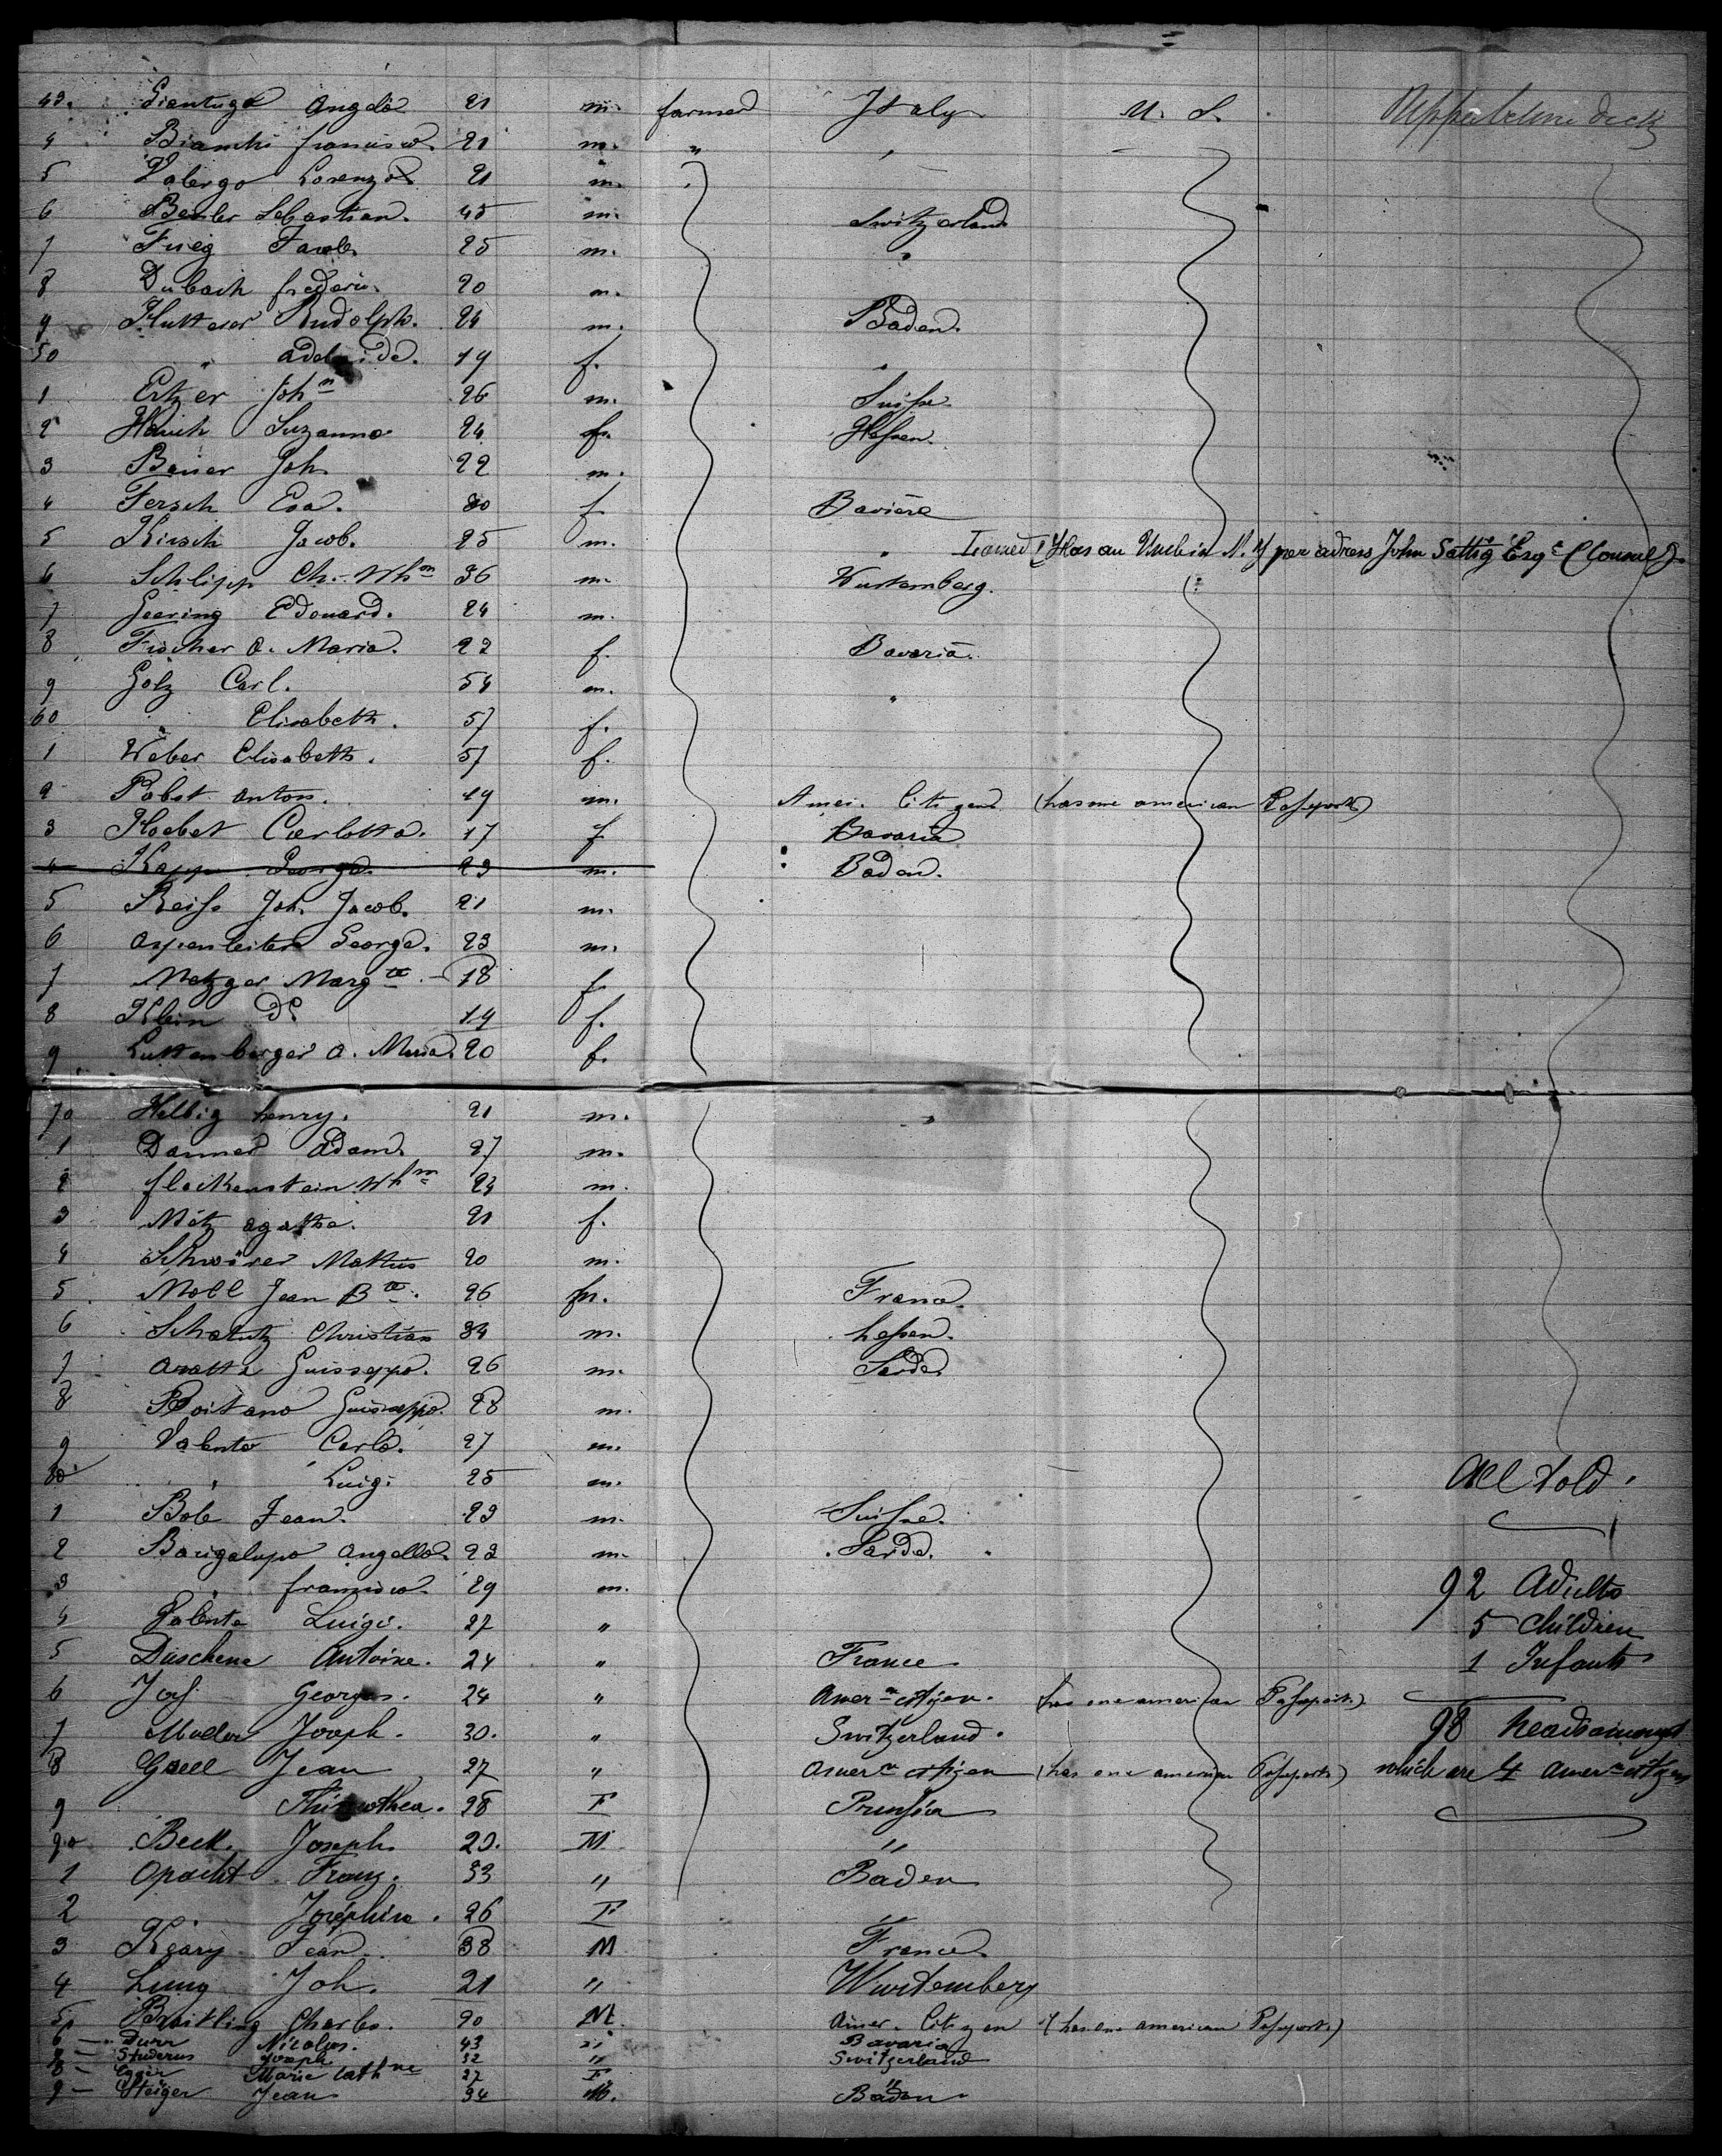 43. Giantuga Angelo 21 m. farmer Italy U. S. Upper between deck
4 Bianchi francisco. 21 m. " "
5 Valergo Lorenzo 21 m. "
6 Besler Sebastian. 45 m. Switzerland
7 Frieg Jacob. 25 m. "
8 Dubach frederic. 20 m.
9 Hutterer Rudolph. 24 m. Baden.
50 " adelaide. 19 f. "
1 Ertzer Joh<sup>n</sup> 26 m. Suisse
2 Hauch Suzanna 24 f. Hessen.
3 Bauer Joh. 22 m.
4 Fersch Eva. 30 f. Bavière
5 Kirsch Jacob. 25 m. " (Has an Uncle in N. Y per adress John Sattig Esq<sup>e</sup> (Counsel)
6 Schlipp Ch. Wh<sup>m</sup> 36 m. Wurtemberg.
7 Geering Edouard. 24 m.
8 Fischer a. Maria. 22 f. Bavaria.
9 Golz Carl. 54 m. "
60 " Elisabeth. 57 f.
1 Weber Elisabeth. 57 f.
2 Pabst anton. 19 m. Amer. Citizen (has one american Passport)
3 Hoebet Carlotta. 17 f Bavaria
4 Kapp George. 23 m. Baden.
5 Reiss Joh. Jacob. 21 m.
6 aspenleiter George. 23 m.
7 Metzger Marg<sup>te</sup> 18 f.
8 Klein D<sup>o</sup> 19 f.
9 Luttenberger a. Maria. 20 f.
70 Helbig henry. 21 m. "
1 Danner Adam. 27 m.
2 fleckenstein Wh<sup>m</sup> 23 m.
3 Metz agatha. 21 f.
4 Schwörer Mathis 20 m.
5 Moll Jean B<sup>te</sup>. 26 m. France.
6 Schatutz Christian 34 m. hessen.
7 aratta Guisseppe. 26 m. Sarde
8 Boitano Guisseppe. 28 m.
9 Valente Carlo. 27 m.
80 " Luigi 25 m. All told.
1 Bole Jean. 23 m. Suisse.
2 Barigalupo Angello. 23 m. Sarde. "
3 " francisco. 29 m. 92 Adults
4 Valente Luigi. 27 " 5 Children
5 Duschene Antoine. 24 " France 1 Infants
6 Jos. Georges. 24 " Amer<sup>n</sup> citizen. (has one american Passport.)
7 Muller Joseph. 30. " Switzerland. 98 heads amongst
8 Goell Jean 27 " Amer<sup>n</sup> citizen (has one american Passport) which are 4 amer<sup>n</sup> citizens
9 28 F Prussia
90 Beck. Joseph 20. M "
1 Opacht Franz. 33 " Baden
2 " Josephine. 26 F "
3 Kgary Jean. 38 M France.
4 Lung Joh. 21 " Wurtemberg
5 Breitling Charles. 20 M. Amer. Citizen (has one american Passport.)
6 — Durr Nicolas. 43 " Bavaria
7 — Studerus Joseph 32 " Switzerland
8 — Egger Marie Cath<sup>ne</sup> 27 F "
9 — Steiger Jean 34 M. Baden.